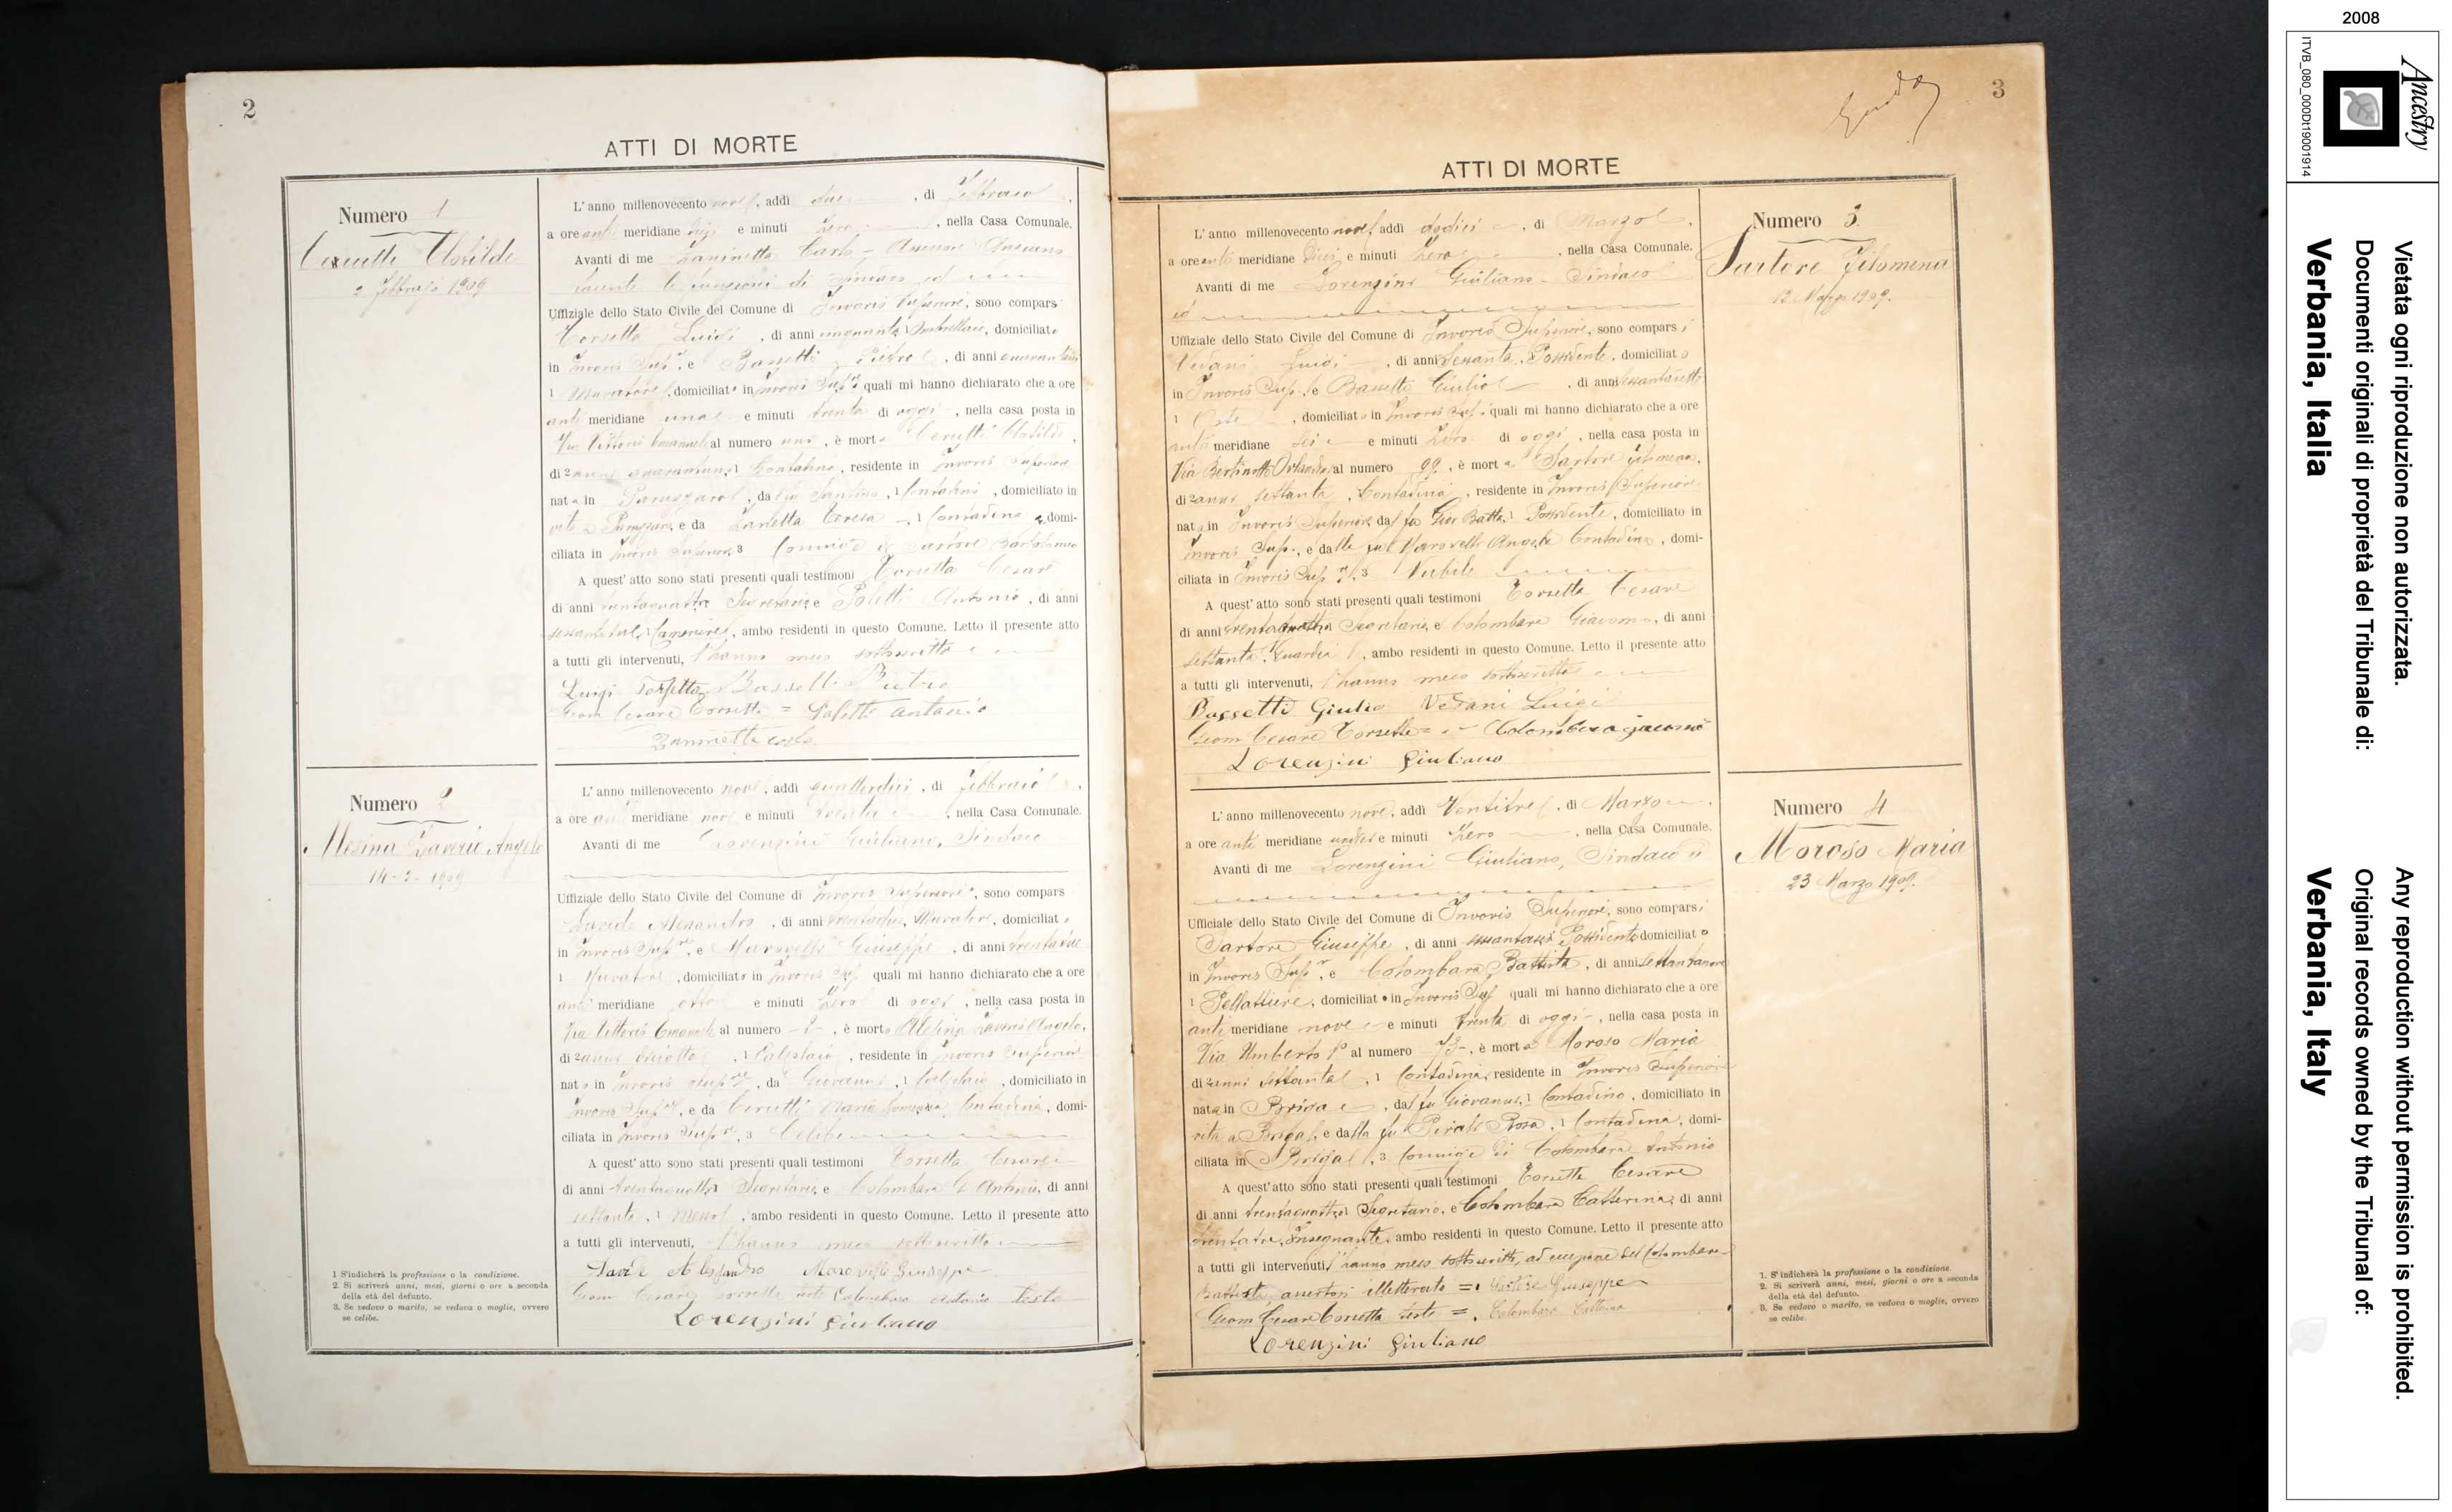 2
ATTI DI MORTE
Numero 1
Cerutti Clotilde
2 Febbrajo 1909
L'anno millenovecento nove, addì due, di Febbraio,
a ore anti meridiane dieci e minuti zero, nella Casa Comunale.
Avanti di me Zaninetta Carlo - Assessore Anziano
facente le funzioni di Sindaco ed
Uffiziale dello Stato Civile del Comune di Invorio Superiore, sono compars
Torsetta Luigi, di anni cinquanta, Ombrellaio, domiciliato
in Invorio Supre, e Bassetti Pietro, di anni
1 Muratore, domiciliato in Invorio Supre, quali mi hanno dichiarato che a ore
anti meridiane una e minuti trenta di oggi, nella casa posta in
Via Vittorio Emanuele al numero uno, è morta Cerutti Clotilde,
di 2 anni quarantuno 1 Contadina, residente in Invorio Superiore
nata in Paruzzaro, da fu Santino, 1 Contadino, domiciliato in
vita a Paruzzaro, e da Zanetta Teresa, 1 Contadina, domi-
ciliata in Invorio Superiore, 3 Coniuge di Sartore Bartolomeo
A quest'atto sono stati presenti quali testimoni Torsetta Cesare
di anni trentaquattro Segretario e Poletti Antonio, di anni
1 Cameriere, ambo residenti in questo Comune. Letto il presente atto
a tutti gli intervenuti, l'hanno meco sottoscritto
Luigi Torsetta Bassetti Pietro
Geom Cesare Torsetta = Poletti Antonio
Zaninetta Carlo
Numero 2
Alesina Zaverio Angelo
14-2-1909
L'anno millenovecento nove, addì quattordici, di Febbraio,
a ore anti meridiane nove e minuti trenta, nella Casa Comunale.
Avanti di me Lorenzini Giuliano, Sindaco
Uffiziale dello Stato Civile del Comune di Invorio Superiore, sono compars
Davide Alessandro, di anni trentadue, Muratore, domiciliato
in Invorio Supre, e Marovelli Giuseppe, di anni trentadue
1 Muratore, domiciliato in Invorio Sup quali mi hanno dichiarato che a ore
anti meridiane otto e minuti zero di oggi, nella casa posta in
Via Vittorio Emanuele al numero -2-, è morto Alesina Zaverio Angelo,
di 2 anni diciotto, 1 Calzolaio, residente in Invorio Superiore
nato in Invorio Supre, da Giovanni, 1 Calzolaio, domiciliato in
Invorio Supre, e da Cerutti Maria Domenica, Contadina, domi-
ciliata in Invorio Supre, 3 Celibe
A quest'atto sono stati presenti quali testimoni Torsetta Cesare
di anni trentaquattro Segretario, e Colombara G Antonio, di anni
settanta, 1 Messo, ambo residenti in questo Comune. Letto il presente atto
a tutti gli intervenuti, l'hanno meco sottoscritto
Davide Alessandro Marovelli Giuseppe
Geom Cesare Torsetta teste Colombara Antonio Teste
Lorenzini Giuliano
1 S'indicherà la professione o la condizione.
2. Si scriverà anni, mesi, giorni o ore a seconda
della età del defunto.
3. Se vedovo o marito, se vedova o moglie, ovvero
se celibe.
3
ATTI DI MORTE
Numero 3
Sartore Filomena
12 Marzo 1909.
L'anno millenovecento nove, addì dodici, di Marzo,
a ore anti meridiane dieci e minuti zero, nella Casa Comunale.
Avanti di me Lorenzini Giuliano - Sindaco
ed
Uffiziale dello Stato Civile del Comune di Invorio Superiore, sono comparsi
Vedani Luigi, di anni sessanta, Possidente, domiciliato
in Invorio Sup, e Bassetti Giulio, di anni sessantasette
1 Oste, domiciliato in Invorio Sup, quali mi hanno dichiarato che a ore
anti meridiane sei e minuti zero di oggi, nella casa posta in
Via Bertinotti Orlando al numero 99, è morta Sartore Filomena,
di 2 anni settanta, Contadina, residente in Invorio Superiore
nata in Invorio Superiore dal fu Gior Batta, 1 Possidente, domiciliato in
Invorio Sup., e dalla fu Marovelli Angela Contadina, domi-
ciliata in Invorio Supre, 3 Nubile
A quest'atto sono stati presenti quali testimoni Torsetta Cesare
di anni trentaquattro Segretario, e Colombara Giacomo, di anni
settanta, Guardia, ambo residenti in questo Comune. Letto il presente atto
a tutti gli intervenuti, l'hanno meco sottoscritto
Bassetti Giulio Vedani Luigi
Geom Cesare Torsetta = Colombara giacomo
Lorenzini Giuliano
Numero 4
Moroso Maria
23 Marzo 1909.
L'anno millenovecento nove, addì Ventitre, di Marzo,
a ore anti meridiane undici e minuti zero, nella Casa Comunale.
Avanti di me Lorenzini Giuliano, Sindaco
Ufficiale dello Stato Civile del Comune di Invorio Superiore, sono comparsi
Sartore Giuseppe, di anni sessantasei Possidente domiciliato
in Invorio Supr, e Colombara Battista, di anni settantanove
1 Pellattiere, domiciliato in Invorio Sup quali mi hanno dichiarato che a ore
anti meridiane nove e minuti trenta di oggi, nella casa posta in
Via Umberto Iº al numero -73-, è morta Moroso Maria
di 2 anni settanta, 1 Contadina, residente in Invorio Superiore
nata in Briga, dal fu Giovanni, 1 Contadino, domiciliato in
vita a Briga, e dalla fu Pirali Rosa, 1 Contadina, domi-
ciliata in Briga, 3 Coniuge di Colombara Antonio
A quest'atto sono stati presenti quali testimoni Torsetta Cesare
di anni trentaquattro Segretario, e Colombara Catterina, di anni
trentatre, Insegnante, ambo residenti in questo Comune. Letto il presente atto
a tutti gli intervenuti l'hanno meco sottoscritto, ad eccezione del Colombara
Battista, assertosi illetterato = Sartore Giuseppe
Geom Cesare Torsetta teste = Colombara Catterina
Lorenzini Giuliano
1. S'indicherà la professione o la condizione.
2. Si scriverà anni, mesi, giorni o ore a seconda
della età del defunto.
3. Se vedovo o marito, se vedova o moglie, ovvero
se celibe.
2008
Ancestry
ITVB_080_000Dt19001914
Vietata ogni riproduzione non autorizzata.
Documenti originali di proprietà del Tribunale di:
Verbania, Italia
Any reproduction without permission is prohibited.
Original records owned by the Tribunal of:
Verbania, Italy